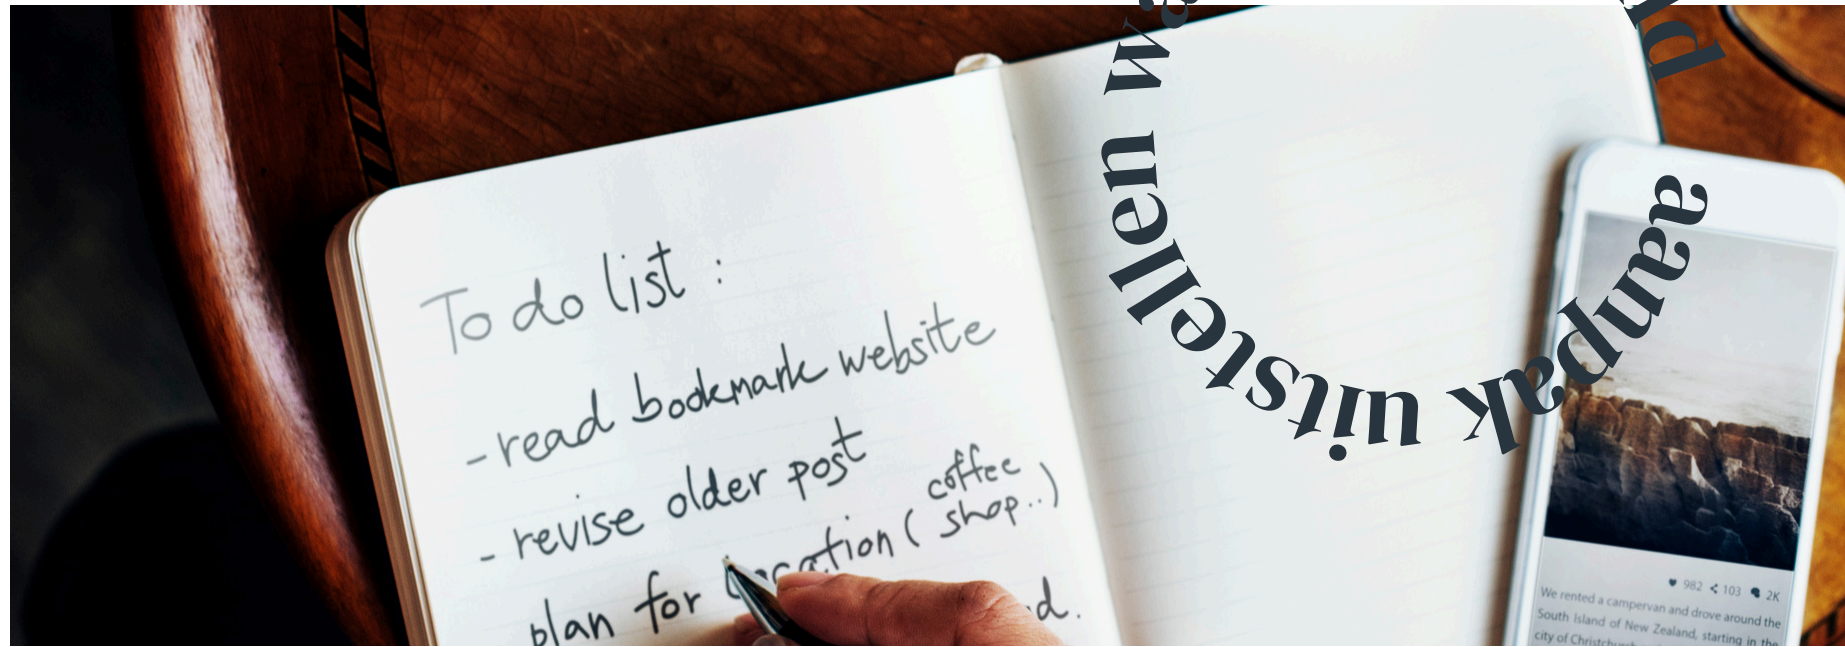 To do list :
- read bookmark website
- revise older post
plan for location ( coffee shop.. )
d.
aanpak uitstellen
982 103 2K
We rented a campervan and drove around the
South Island of New Zealand, starting in the
city of